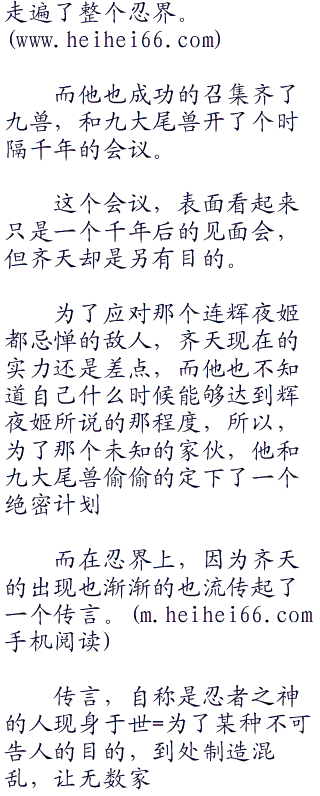 走遍了整个忍界。
(www.heihei66.com)
而他也成功的召集齐了
九兽，和九大尾兽开了个时
隔千年的会议。
这个会议，表面看起来
只是一个千年后的见面会，
但齐天却是另有目的。
为了应对那个连辉夜姬
都忌惮的敌人，齐天现在的
实力还是差点，而他也不知
道自己什么时候能够达到辉
夜姬所说的那程度，所以，
为了那个未知的家伙，他和
九大尾兽偷偷的定下了一个
绝密计划
而在忍界上，因为齐天
的出现也渐渐的也流传起了
一个传言。(m.heihei66.com
手机阅读)
传言，自称是忍者之神
的人现身于世=为了某种不可
告人的目的，到处制造混
乱，让无数家